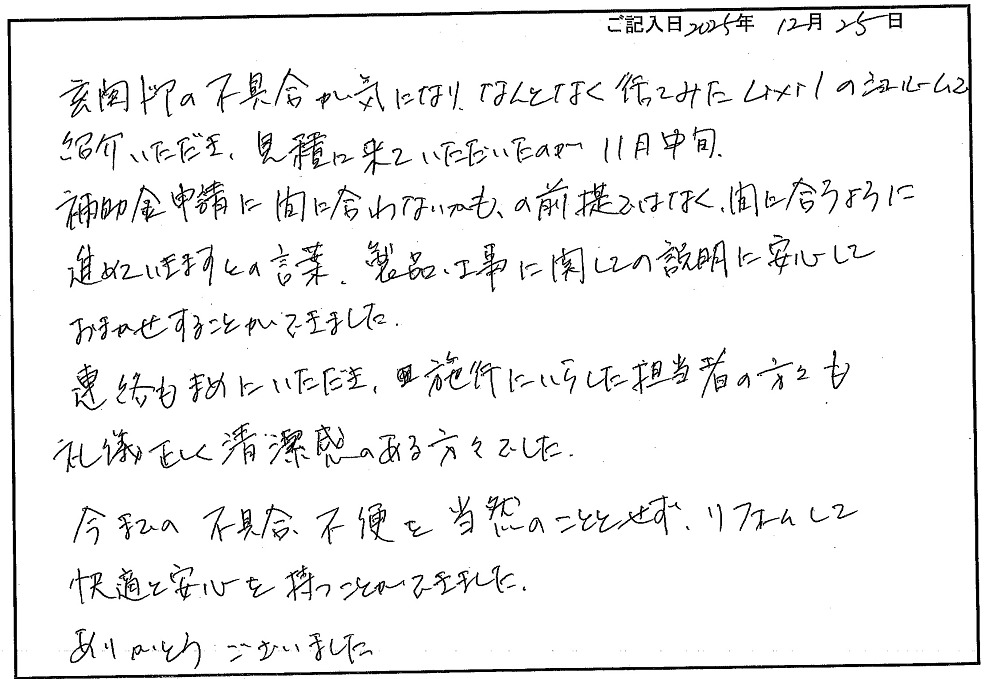 ご記入日2025年 12月 25日
玄関ドアの不具合が気になり、なんとなく行ってみたLixilのショールームで
紹介いただき、見積に来ていただいたのが11月中旬。
補助金申請に間に合わないかも、の前提ではなく、間に合うように
進めていきますとの言葉、製品、工事に関しての説明に安心して
おまかせすることができました。
連絡もまめにいただき、施行にいらした担当者の方々も
礼儀正しく清潔感のある方々でした。
今までの不具合、不便を当然のこととせず、リフォームして
快適と安心を持つことができました。
ありがとうございました